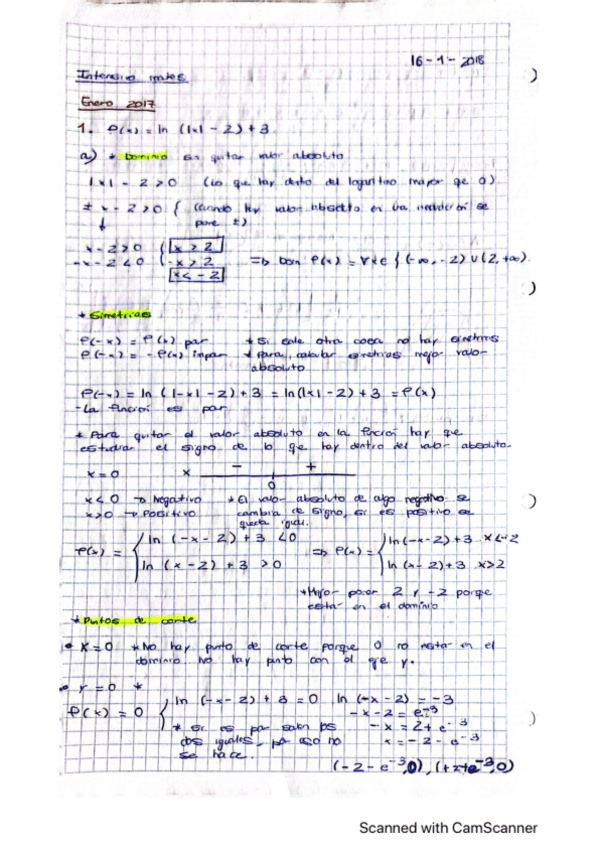 16-1-2018
Intensivo mates
Enero 2017
1. f(x) = ln (|x| - 2) + 3
a) * Dominio sin quitar valor absoluto
|x| - 2 > 0 (Lo que hay dentro del logaritmo mayor que 0)
± x - 2 > 0 { (cuando hay valor absoluto en una inecuación se
pone ±)
x - 2 > 0 { x > 2
-x - 2 < 0 { -x > 2 => Dom f(x) = ∀x∈ { (-∞, -2) ∪ (2, +∞).
x < -2
* Simetrías
f(-x) = f(x) par * Si sale otra cosa no hay simetrías
f(-x) = -f(x) impar * Para calcular simetrías mejor valor
absoluto
f(-x) = ln (|-x| - 2) + 3 = ln (|x| - 2) + 3 = f(x)
- La función es par
* Para quitar el valor absoluto en la función hay que
estudiar el signo de lo que hay dentro del valor absoluto.
x = 0 x - +
0
x < 0 → Negativo * El valor absoluto de algo negativo se
x > 0 → Positivo cambia de signo, si es positivo se
queda igual.
f(x) = { ln (-x - 2) + 3 < 0 => f(x) = { ln (-x - 2) + 3 x < -2
ln (x - 2) + 3 > 0 ln (x - 2) + 3 x > 2
* Mejor poner 2 y -2 porque
está en el dominio
* Puntos de corte
• x = 0 * No hay punto de corte porque 0 no está en el
dominio. No hay punto con el eje y.
• y = 0 *
f(x) = 0 { ln (-x - 2) + 3 = 0 ln (-x - 2) = -3
-x - 2 = e⁻³
* Si es par salen los -x = 2 + e⁻³
dos iguales, por eso no x = -2 - e⁻³
se hace.
(-2 - e⁻³, 0), (+2 + e⁻³, 0)
Scanned with CamScanner